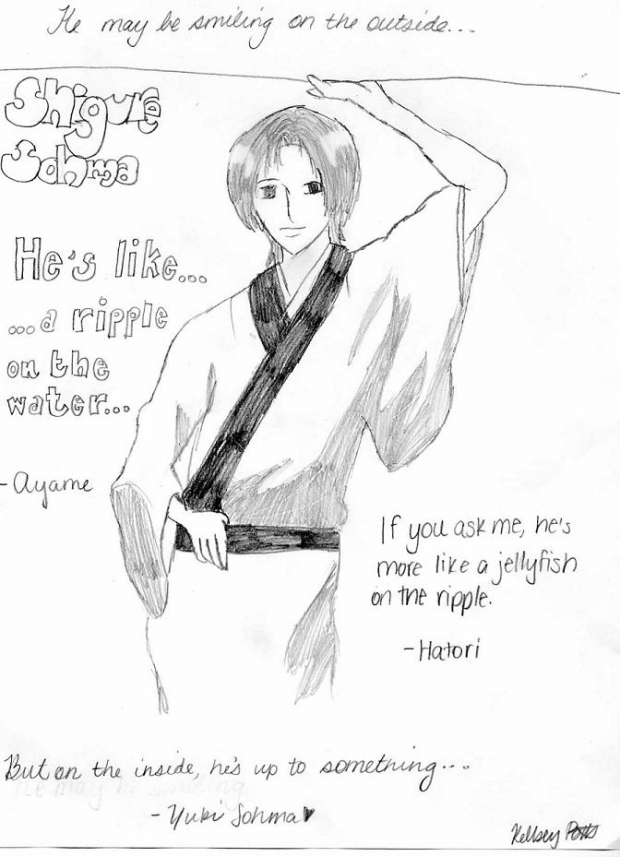 He may be smiling on the outside...
Shigure
Sohma
He's like...
...a ripple
on the
water...
-Ayame
If you ask me, he's
more like a jellyfish
on the ripple.
-Hatori
But on the inside, he's up to something...
He may be smiling
-Yuki Sohma♥
Kellsey Potts